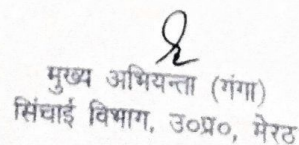 मुख्य अभियन्ता (गंगा)
सिंचाई विभाग, उ०प्र०, मेरठ